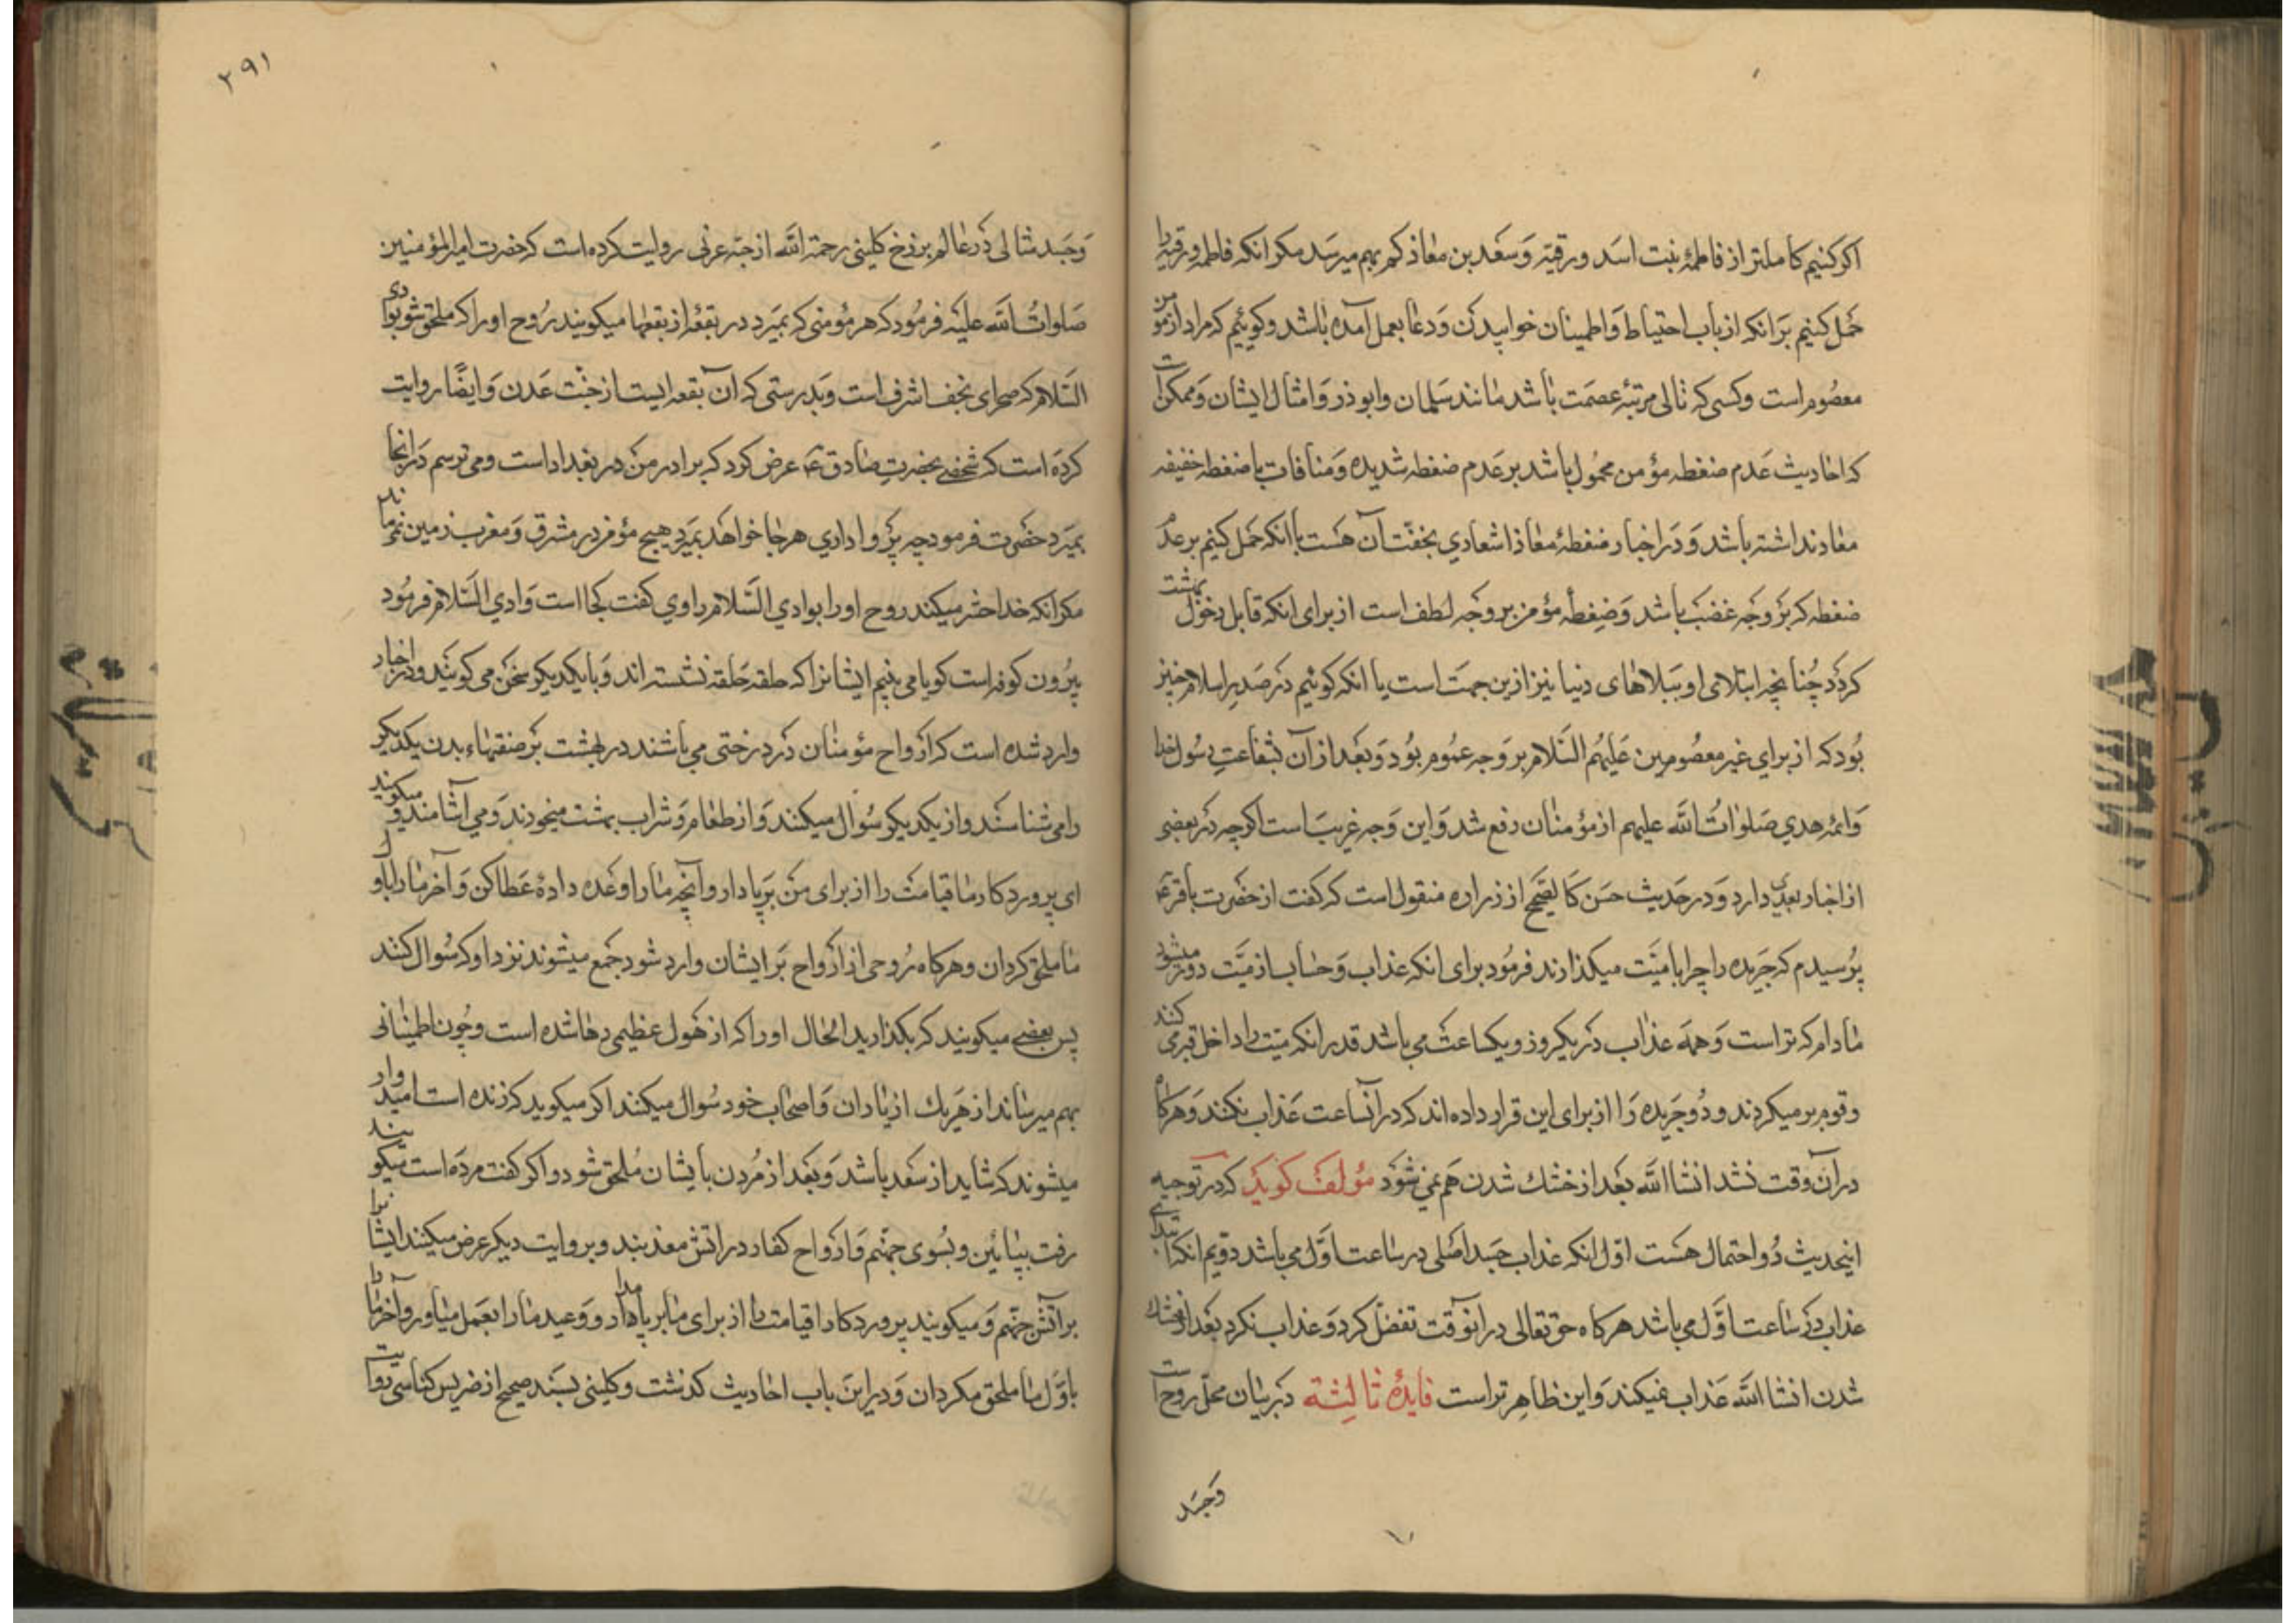 اکر کنیم کاملتر از فاطمۀ بنت اسد و رقیّه وَسعَد بن معاذ کم بهم میرسَد مکر انکه فاطمه و رقیه را
حَمل کنیم بَرانکه از باب احتیاط وَاطمینان خوابیدن وَدعا بعمل آمده باشد وکوئیم که مراد از مؤمن
معصُوم است وکسی که تالی مرتبۀ عصمَت باشد مانند سَلمان وابوذر وَامثال ایشان وَممکن است
که احادیث عَدم ضغطه مؤمن محمُول باشد بر عَدم ضغطه شدیده وَمنافات با ضغطه خفیفه
معاد نداشته باشد وَدَر اخبار ضغطۀ معاذ اشعاری بخفّت آن هسَت با انکه حَمل کنیم بر عدم
ضغطه که بَر وَجه غضَب باشد وَضغطۀ مؤمن بر وَجه لطف است از برای انکه قابل دخول بهشت
کردَد چُنانچه ابتلای او ببَلاهای دنیا نیز ازین جهَت است یا انکه کوئیم در صَدر اسلام چنین
بُود که از برای غیر معصُومین عَلیهُم السَّلام بر وَجه عمُوم بُود وَبعَد از آن بشفاعتِ رسُول خدا
وَائمۀ هدی صَلواتُ اللّه علیهم از مؤمنان رفع شد وَاین وَجه غریبَ است اکرچه در بعضی
از اخبار بعدی دارد وَدر حَدیث حَسن کالصَّحیح از زراره منقول است که کفت از حضرت باقر ع
پُرسیدم که جَریده را چرا با میّت میکذارند فرمُود برای انکه عذاب وَحساب از میَّت دور میشود
مادام که تر است وَهمَه عذاب دَر یکروز ویکساعت می باشد قدر انکه میّت را داخل قبر می کنند
وقوم بر میکردند ودُو جَریده رَا از برای این قرار داده اند که در آنساعت عَذاب نکنند وَهرکاه
در آنوقت نشد انشا اللَّه بعَد از خشک شدن هَم نمی شوَد مؤلف کوید که در توجیه
اینحدیث دُو احتمال هسَت اوّل انکه عذاب جسَد اصلی در ساعت اوَّل می باشد دویم انکه ابتدای
عذاب دَر ساعت اوَّل می باشد هرکاه حق تعالی در انوقت تفضّل کرد وَعذاب نکرد بعَد از خشک
شدن انشا اللَّه عَذاب نمیکند وَاین ظاهر تر است فایدۀ ثالثة دَر بیان محلّ روح است
وَجسَد
۳۹۱
وَجسَد مثالی دَر عالم برزخ کلینی رحمة اللَّه از حبّه عرنی روایت کرده است که حضرت امیر المؤمنین
صَلواتُ اللَّه علیه فرمُود که هر مؤمنی که بمیَرد در بقعۀ از بقعها میکویند رُوح او را که ملحق شو بوادی
السَّلام که صحرای نجف اشرف است وَبدرستی که آن بقعه ایست از جنّت عَدن وَایضًا روایت
کردَه است که شخصے بحضرتِ صادق ع عرض کود که برادر من در بغداد است ومی ترسم دَر انجا
بمیَرد حضرت فرمود چه پَروا داری هر جا خواهَد بمیَرد هیچ مؤمن در مشرق وَمغرب زمین نمی ماند
مکر انکه خدا حشر میکند روح او را بوادی السَّلام راوی کفت کجا است وَادی السَّلام فرمُود
بیرُون کوفه است کویا می بینم ایشانرا که حلقه حَلقه نشسته اند وَبا یکدیکر سخن می کویند ودر اخبار
وارد شده است که ارَواح مؤمنان دَر درختی می باشند در بهشت بَر صفتهاء بدن یکدیکر
را می شناسَند واز یکدیکر سُوال میکنند وَاز طعام وَشراب بهشت میخورند وَمی آشامند ومیکویند
ای پروردکار ما قیامت را از برای من بَر پا دار وآنچه ما را وعَده دادۀ عَطا کن وَآخر ما را باوَّل
ما ملحق کردان وهرکاه رُوحی از ارَواح بَر ایشان وارد شود جَمع میشوند نزد او که سُوال کنند
پس بعضے میکویند که بکذارید الحال او را که از هَول عظیمی رها شده است وچُون اطمینانی
بهم میرساند از هَر یک از یاران وَاصحاب خود سُوال میکنند اکر میکوید که زنده است امیدوار
میشوند که شاید از سعَد باشد وَبعَد از مُردن بایشان مُلحق شود واکر کفت مردَه است میکویند
رفت بپائین وبسُوی جهنّم وَارَواح کفار در اتش معذبند وبروایت دیکر عرض میکنند ایشانرا
بر آتش جهنّم وَمیکویند پروردکارا قیامت را از برای ما بر پا مدار ووَعید ما را بعَمل میاور وآخر ما را
باوَّل ما ملحق مکردان وَدر این باب احادیث کذشت وکلینی بسَند صحیح از ضریس کناسی روایت